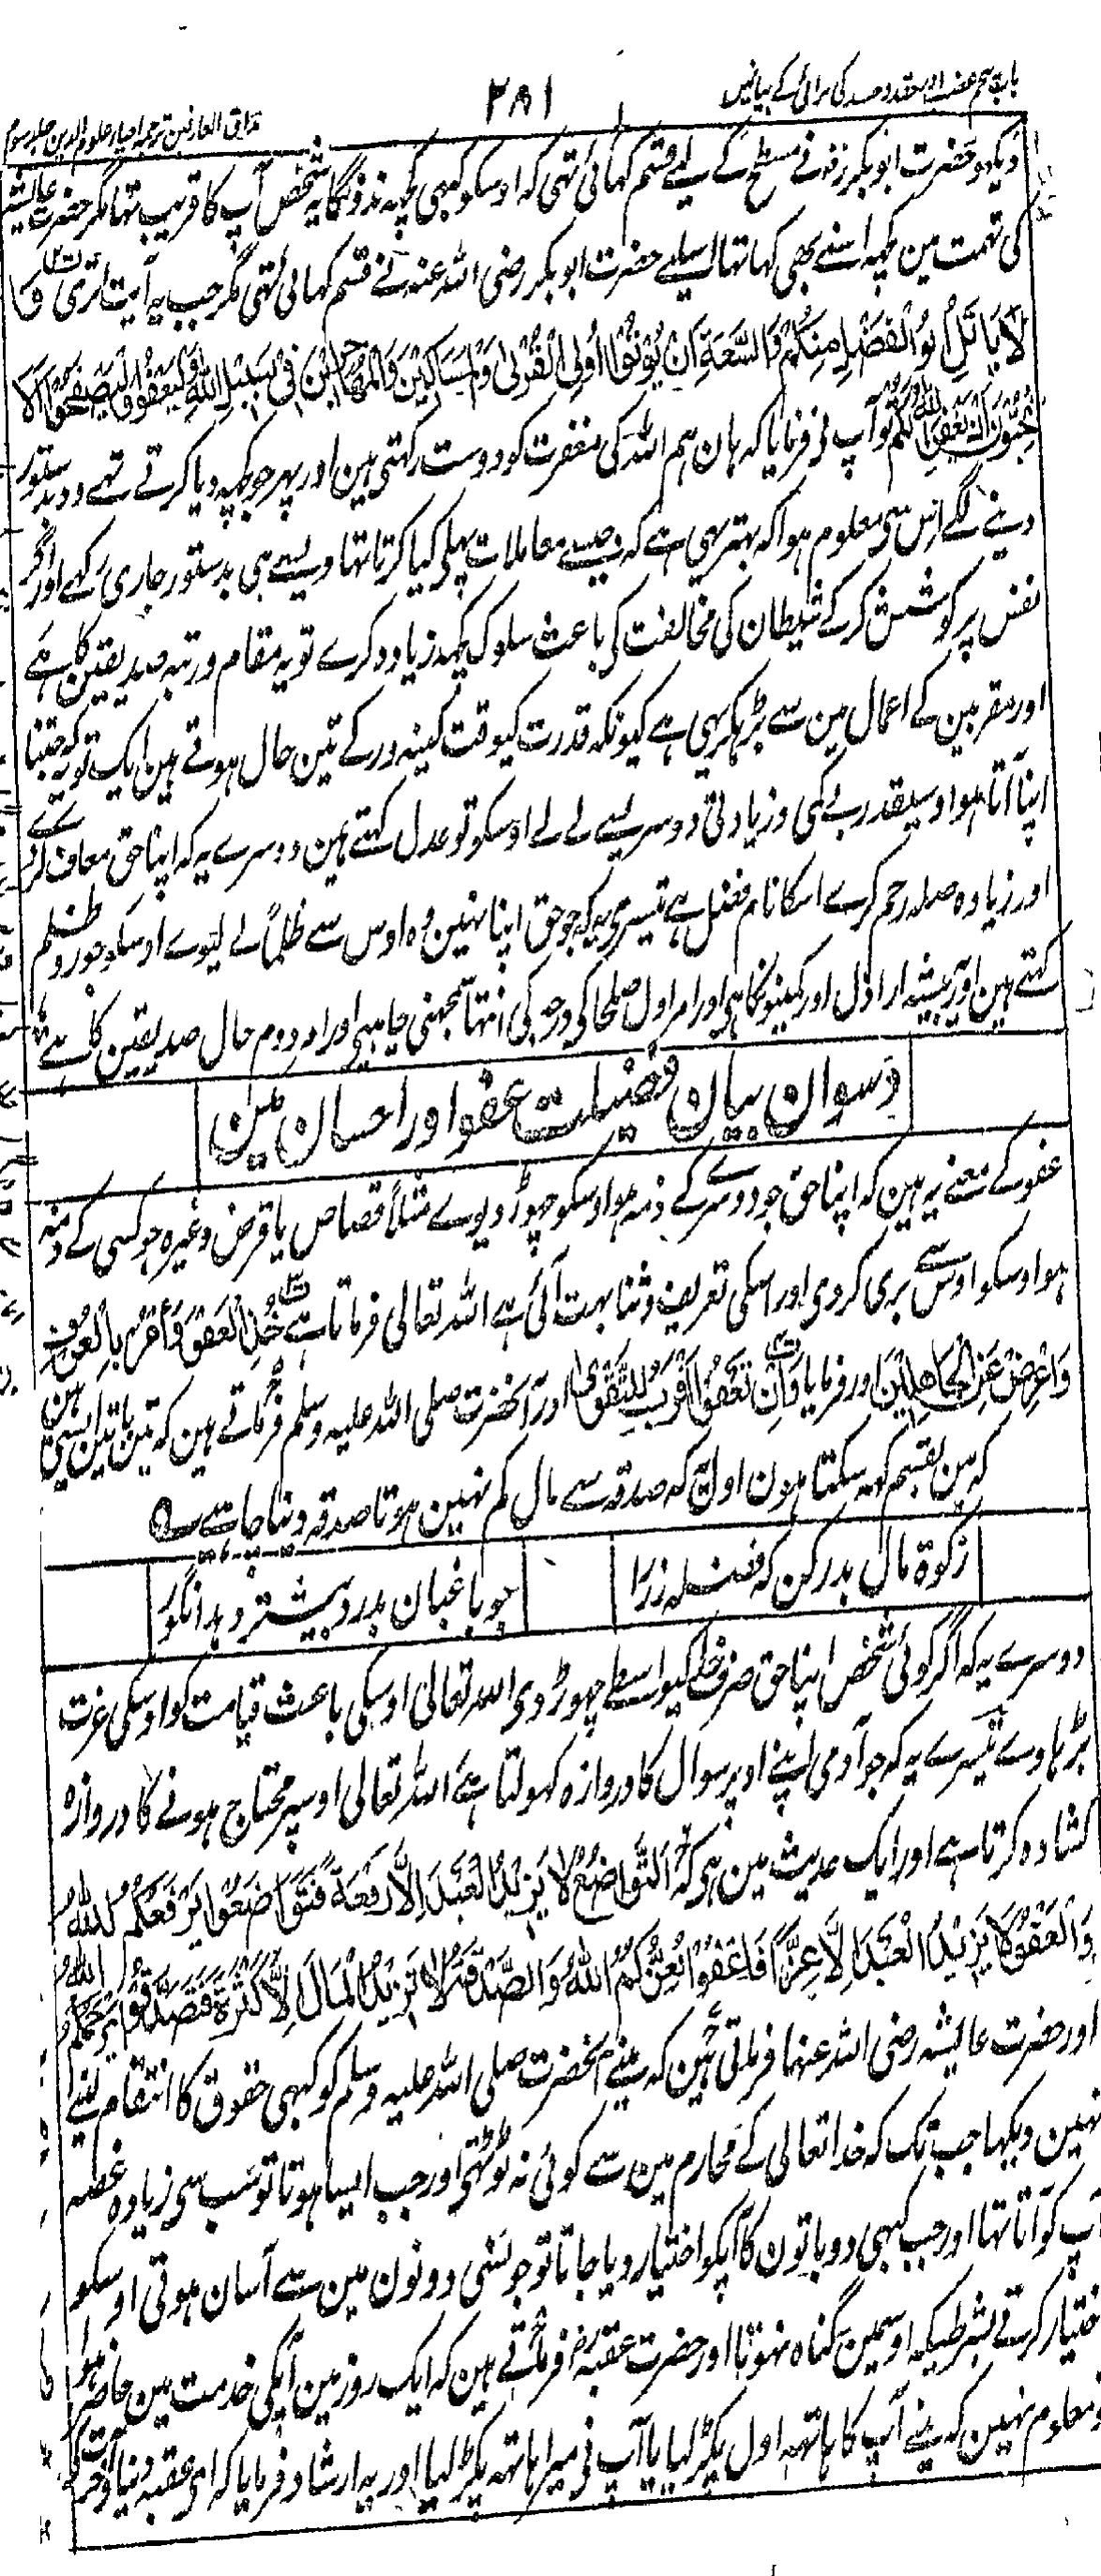 باب پنجم غضب اور حقد و حسد کی برائی کے بیان میں
۲۸۱
مذاق العارفین ترجمہ احیاء علوم الدین جلد سوم
دیکھو حضرت ابوبکر رضنے مسطح کے لیے قسم کہائی تہی کہ اوسکو کبہی کچہہ ندونگا یہ شخص آپ کا قریب تہا مگر حضرت عائشہ
کی تہمت مین کچہہ اسنے بھی کہا تہا اسلیے حضرت ابوبکر رضی اللہ عنہ نے قسم کہائی تہی مگر جب یہ آیت اتری وَ
لَا یَاْتَلِ اُولُو الْفَضْلِ مِنْکُمْ وَالسَّعَةِ اَنْ یُّؤْتُوْا اُولِی الْقُرْبٰی وَالْمَسَاکِیْنَ وَالْمُهَاجِرِیْنَ فِیْ سَبِیْلِ اللّٰهِ وَلْیَعْفُوْا وَلْیَصْفَحُوْا اَلَا
تُحِبُّوْنَ اَنْ یَّغْفِرَ اللّٰهُ لَکُمْ تو آپ نی فرمایا کہ ہان ہم اللہ کی مغفرت کو دوست رکہتی ہین اور پہر جو کچہہ دیا کرتے تہے وہ بدستور
دینے لگے اس سی معلوم ہوا کہ بہتر یہی ہے کہ جیسے معاملات پہلی کیا کرتا تہا ویسے ہی بدستور جاری رکہے اور اگر
نفس پر کوشش کر کے شیطان کی مخالفت کی باعث سلوک کچہہ زیادہ کرے تو یہ مقام و رتبہ صدیقین کا ہے
اور مقربین کے اعمال مین سے بڑہکر یہی ہے کیونکہ قدرت کیوقت کینہ ور کے تین حال ہوتے ہین ایک تو یہ کہ جتنا
اپنا آتا ہو اوسیقدر بے کمی و زیادتی دوسریسے لے لے اوسکو تو عدل کہتے ہین دوسرے یہ کہ اپنا حق معاف کرے
اور زیادہ صلہ رحم کرے اسکا نام فضل ہے تیسری یہ کہ جو حق اپنا نہین وہ اوس سے ظلماً لے لیوے اوسکو جور و ظلم
کہتے ہین اور یہ پیشہ ارازل اور کمینونکا ہی اور امر اول صلحا کی درجہ کی انتہا سمجہنی چاہیے اور امر دوم حال صدیقین کا ہے
دسوان بیان فضیلت عفو اور احسان مین
عفو کے معنے یہ ہین کہ اپنا حق جو دوسرے کے ذمہ ہو اوسکو چہوڑ دیوے مثلاً قصاص یا قرض وغیرہ جو کسی کے ذمہ
ہو اوسکو اوس سے بری کردی اور اسکی تعریف و ثنا بہت آئی ہے اللہ تعالی فرماتا ہے خُذِ الْعَفْوَ وَاْمُرْ بِالْعُرْفِ
وَاَعْرِضْ عَنِ الْجَاهِلِیْنَ اور فرمایا وَاَنْ تَعْفُوْا اَقْرَبُ لِلتَّقْوٰی اور آنحضرت صلی اللہ علیہ وسلم فرماتے ہین کہ تین باتین ایسی ہین
کہ مین بقسم کہہ سکتا ہون اول یہ کہ صدقہ سے مال کم نہین ہوتا صدقہ دینا چاہیے
زکوة مال بدر کن کہ فضلہ رز را
چو باغبان بدرد بیشتر دہد انگور
دوسرے یہ کہ اگر کوئی شخص اپنا حق صرف خدا کیواسطے چہوڑ دی اللہ تعالی اوسکی باعث قیامت کو اوسکی عزت
بڑہاوے تیسرے یہ کہ جو آدمی اپنے اوپر سوال کا دروازہ کہولتا ہے اللہ تعالی اوسپر محتاج ہونے کا دروازہ
کشادہ کرتا ہے اور ایک حدیث مین ہی کہ اَلتَّوَاضُعُ لَا یَزِیْدُ الْعَبْدَ اِلَّا رِفْعَةً فَتَوَاضَعُوْا یَرْفَعْکُمُ اللّٰهُ
وَالْعَفْوُ لَا یَزِیْدُ الْعَبْدَ اِلَّا عِزًّا فَاعْفُوْا یُعِزُّکُمُ اللّٰهُ وَالصَّدَقَةُ لَا تَزِیْدُ الْمَالَ اِلَّا کَثْرَةً فَتَصَدَّقُوْا یَرْحَمْکُمُ اللّٰهُ
اور حضرت عایشہ رضی اللہ عنہا فرماتی ہین کہ مینے آنحضرت صلی اللہ علیہ وسلم کو کبہی حقوق کا انتقام لیتے
نہین دیکہا جب تک کہ خدا تعالی کے محارم مین سے کوئی نہ ٹوٹتی اور جب ایسا ہوتا تو سب سی زیادہ غصہ
آپ کو آتا تہا اور جب کبہی دو باتون کا آپکو اختیار دیا جاتا تو جونسی دونون مین سے آسان ہوتی اوسکو
ختیار کرتے بشرطیکہ اوسمین گناہ نہوتا اور حضرت عقبہ رض فرماتے ہین کہ ایک روز مین آپکی خدمت مین حاضر ہوا
معلوم نہین کہ مینے آپ کا ہاتہہ اول پکڑ لیا یا آپ نی میرا ہاتہہ پکڑ لیا اور یہ ارشاد فرمایا کہ ای عقبہ دنیا و آخرت